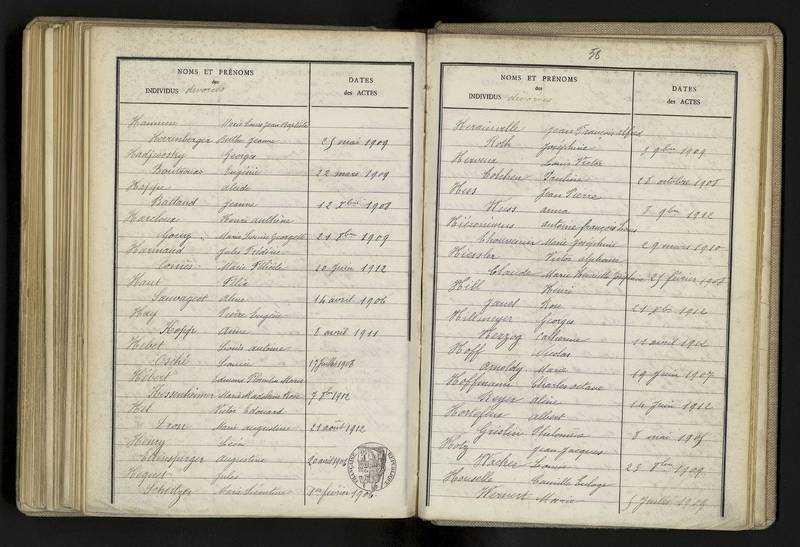 NOMS ET PRÉNOMS
des
INDIVIDUS divorcés
DATES
des ACTES
Hannen Marie Louis Jean Baptiste
Herrenberger Berthe Jeanne 25 mai 1909
Hadjwostry Georges
Eugénie 22 mars 1909
Happe Alcide
Balland Jeanne 12 Xbre 1908
Harcloux Henri
Goury Marie Louise Georgette 21 Xbre 1909
Harmand Jules Frédéric
Comès Marie 20 juin 1912
Haut Félix
Sauvageot Aline 14 avril 1906
Hay Pierre Eugène
Kopp Anne 8 avril 1911
Hebet Louis Antoine
Osché Louise 17 juillet 1908
Hébert Edmond Marie
Hessenheimer Marie Madeleine Rose 7 1912
Hel Victor Edouard
Dron Marie Augustine 21 août 1912
Henry Léon
Augustine 20 avril 1906
Hequet Jules
Schlitzer Marie 1er février 1906
58
NOMS ET PRÉNOMS
des
INDIVIDUS divorcés
DATES
des ACTES
Herainville Jean François Alfred
Roth Joséphine 9 9bre 1909
Herveux Louis Victor
Colchen Pauline 28 octobre 1908
Hess Jean Pierre
Weiss Anna 8 9bre 1912
Hiéronimus Antoine François Louis
Chouvenier Marie Joséphine 29 mars 1910
Hiessler Victor Alphonse
Claude Marie Joséphine 25 février 1908
Hill Henri
Janel Rose 21 1912
Hillmeyer Georges
Herzog Catherine 11 avril 1912
Hoff Nicolas
Arnoldy Marie 19 juin 1907
Hoffmann Charles Octave
Reyer Aline 14 juin 1912
Hortefeux Albert
Grislin Philomène 8 mai 1905
Hotz Jean Jacques
Wacker Louise 23 Xbre 1909
Houselle Camille
Wernert Marie 5 juillet 1909